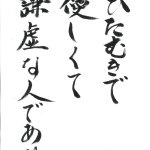 ひたむきで
優しくて
謙虚な人であ